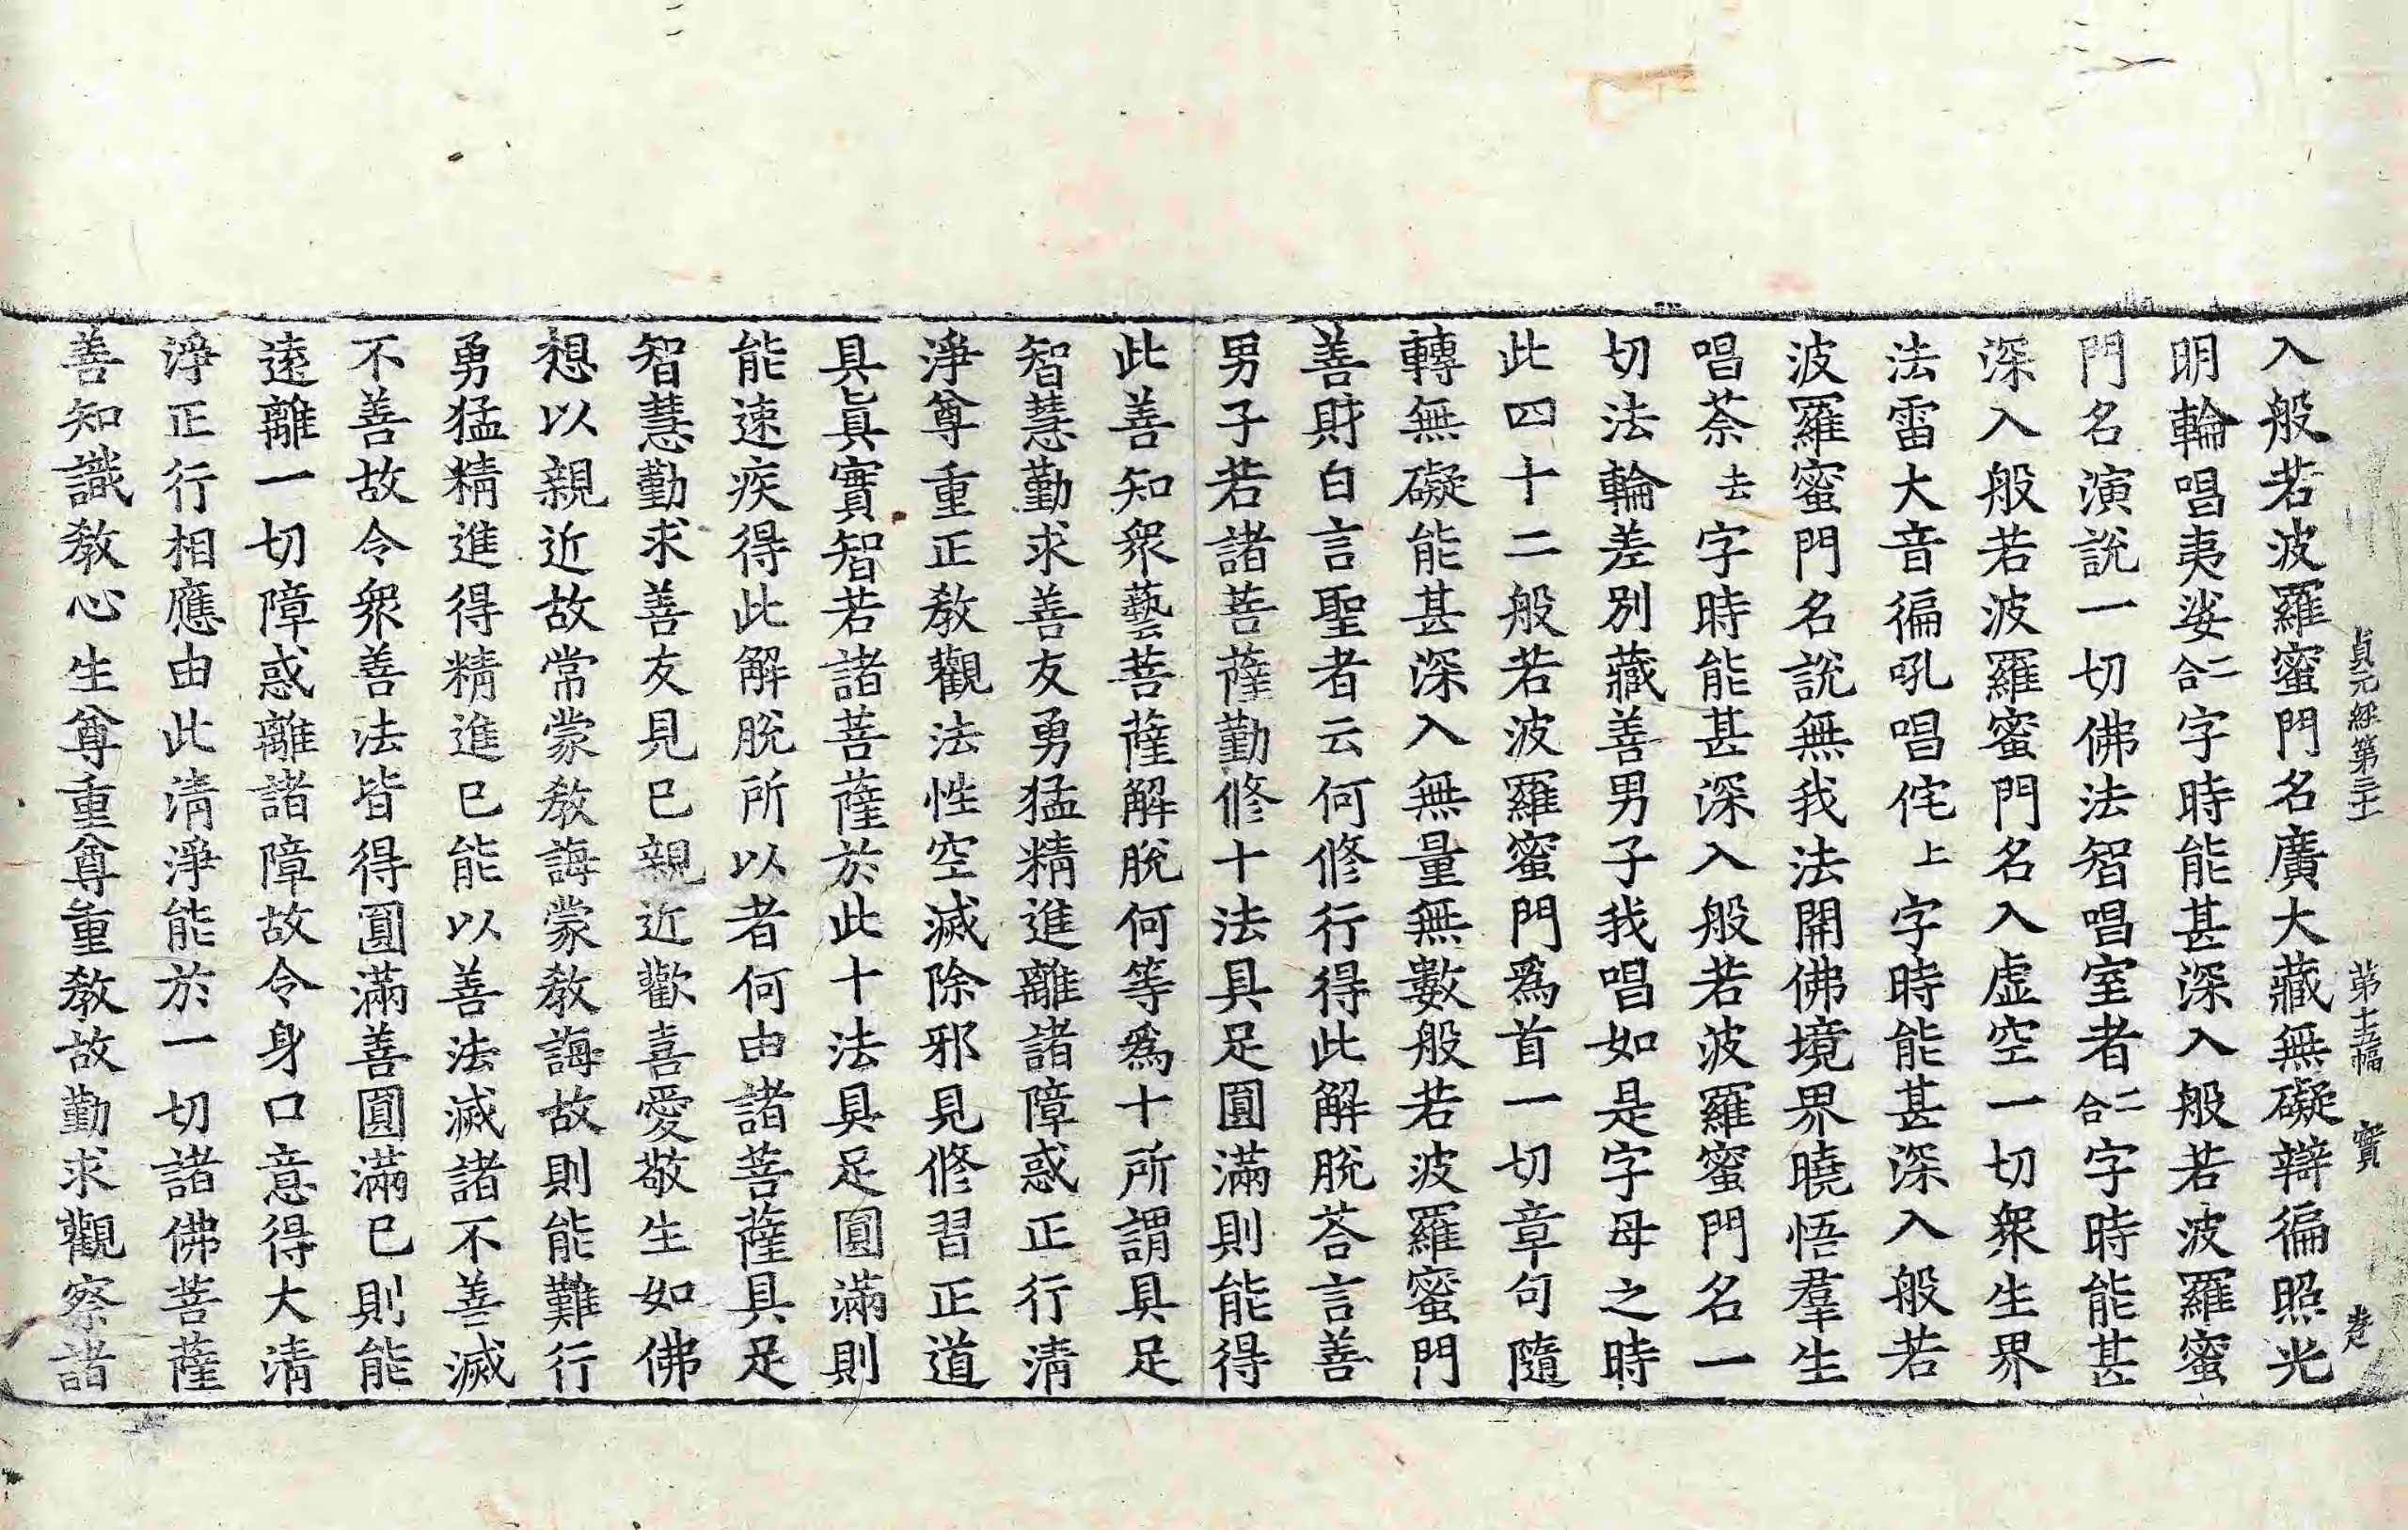 貞元經第三十 第十五幅 實
入般若波羅蜜門名廣大藏無礙辯徧照光
明輪唱夷娑二合字時能甚深入般若波羅蜜
門名演說一切佛法智唱室者二合字時能甚
深入般若波羅蜜門名入虛空一切衆生界
法雷大音徧吼唱侘上字時能甚深入般若
波羅蜜門名說無我法開佛境界曉悟羣生
唱荼去字時能甚深入般若波羅蜜門名一
切法輪差別藏善男子我唱如是字母之時
此四十二般若波羅蜜門爲首一切章句隨
轉無礙能甚深入無量無數般若波羅蜜門
善財白言聖者云何修行得此解脫荅言善
男子若諸菩薩勤修十法具足圓滿則能得
此善知衆藝菩薩解脫何等爲十所謂具足
智慧勤求善友勇猛精進離諸障惑正行清
淨尊重正教觀法性空滅除邪見修習正道
具眞實智若諸菩薩於此十法具足圓滿則
能速疾得此解脫所以者何由諸菩薩具足
智慧勤求善友見已親近歡喜愛敬生如佛
想以親近故常蒙教誨蒙教誨故則能難行
勇猛精進得精進已能以善法滅諸不善滅
不善故令衆善法皆得圓滿善圓滿已則能
遠離一切障惑離諸障故令身口意得大清
淨正行相應由此清淨能於一切諸佛菩薩
善知識教心生尊重尊重教故勤求觀察諸